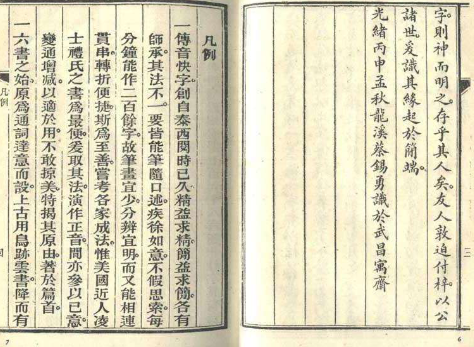 字。則神而明之。存乎其人矣。友人敦迫付梓以公
諸世。爰識其緣起於簡端。
光緒丙申孟秋龍溪蔡錫勇識於武昌寓齋
6
凡例
一傳音快字。創自泰西。閱時已久。精益求精。簡益求簡。各有
師承。其法不一。要皆能筆隨口述。疾徐如意。不假思索。每
分鐘能作二百餘字。故筆畫宜少。分辨宜明。而又能相連
貫串。轉折便捷。斯爲至善。嘗考各家成法。惟美國近人凌
士禮氏之書爲最便。爰取其法。演作正音。間亦參以己意。
變通增減。以適於用。不敢掠美。特揭其原由。著於篇首。
一六書之始。原爲通詞達意而設。上古用鳥跡雲書。降而有
凡例
7